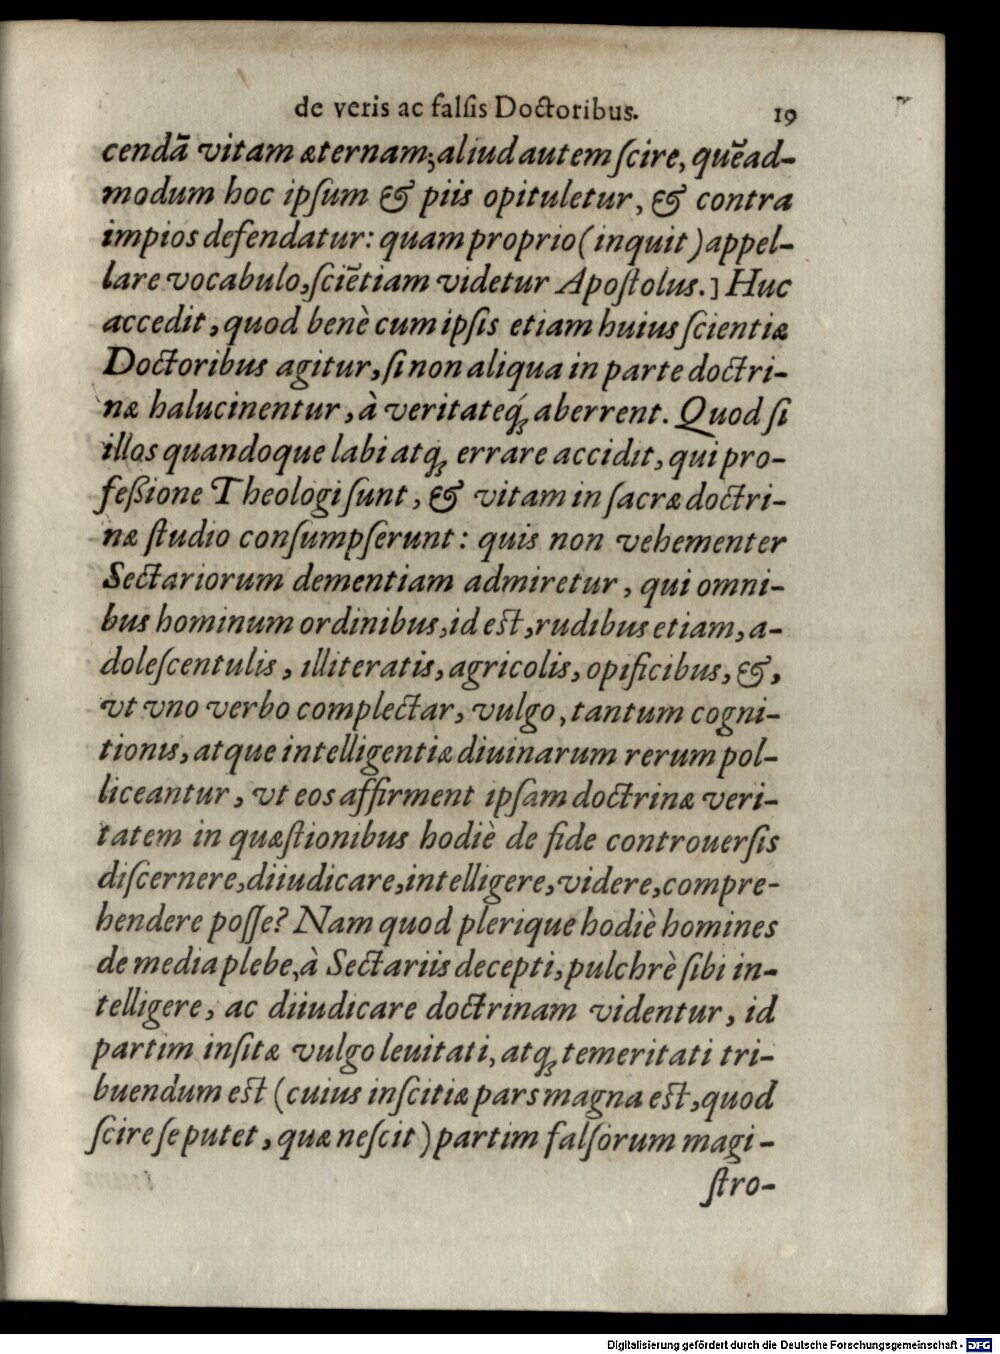 de veris ac falsis Doctoribus. 19
cendã vitam æternam; aliud autem ſcire, quẽad-
modum hoc ipſum & piis opituletur, & contra
impios defendatur: quam proprio (inquit) appel-
lare vocabulo, ſciẽtiam videtur Apoſtolus.] Huc
accedit, quod benè cum ipſis etiam huius ſcientiæ
Doctoribus agitur, ſi non aliqua in parte doctri-
næ halucinentur, à veritateq́; aberrent. Quod ſi
illos quandoque labi atq; errare accidit, qui pro-
feßione Theologi ſunt, & vitam in ſacræ doctri-
næ ſtudio conſumpſerunt: quis non vehementer
Sectariorum dementiam admiretur, qui omni-
bus hominum ordinibus, id est, rudibus etiam, a-
doleſcentulis, illiteratis, agricolis, opificibus, &,
vt vno verbo complectar, vulgo, tantum cogni-
tionis, atque intelligentiæ diuinarum rerum pol-
liceantur, vt eos affirment ipſam doctrinæ veri-
tatem in quæſtionibus hodiè de fide controuerſis
diſcernere, diiudicare, intelligere, videre, compre-
hendere poſſe? Nam quod plerique hodiè homines
de media plebe, à Sectariis decepti, pulchrè ſibi in-
telligere, ac diiudicare doctrinam videntur, id
partim inſitæ vulgo leuitati, atq; temeritati tri-
buendum est (cuius inſcitiæ pars magna est, quod
ſcire ſe putet, quæ neſcit) partim falſorum magi-
ſtro-
Digitalisierung gefördert durch die Deutsche Forschungsgemeinschaft - DFG